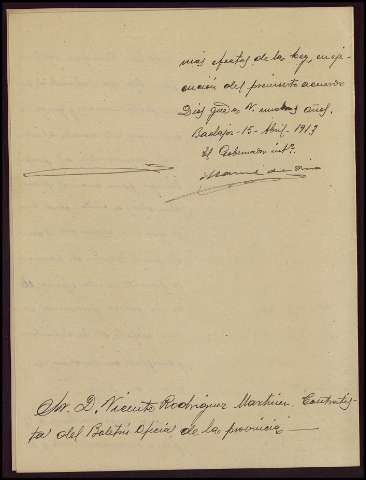 más efectos de la ley, en eje-
cución del presente acuerdo
Dios gue. a V. muchos años.
Badajoz - 15 - Abril - 1913
El Gobernador intº.
Sr. D. Vicente Rodríguez Martínez Contratis-
ta del Boletín Oficial de la provincia